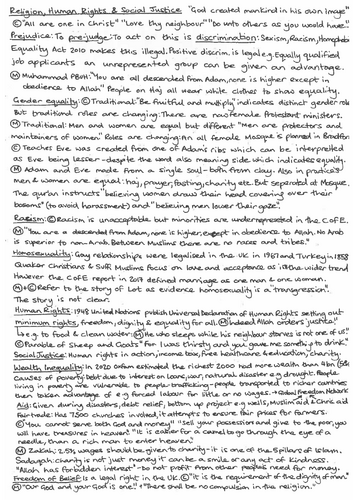 Religion, Human Rights & Social Justice "God created mankind in his own image"
Ⓒ"All are one in Christ" "Love thy neighbour" "Do unto others as you would have."
Prejudice: To pre-judge. To act on this is discrimination: Sexism, Racism, Homophobia
Equality Act 2010 makes this illegal. Positive discrim. is legal e.g. Equally qualified
job applicants an unrepresented group can be given an advantage.
Ⓜ Muhammad PBUH: "You are all descended from Adam, none is higher except in
obedience to Allah" People on Hajj all wear white clothes to show equality.
Gender equality: Ⓒ Traditional: "Be fruitful and multiply" indicates distinct gender role
But traditional roles are changing. There are now female Protestant ministers.
Ⓜ Traditional: Men and women are equal but different "Men are protectors and
maintainers of women" Roles are changing: An all female Mosque is planned in Bradford
Ⓒ Teaches Eve was created from one of Adam's ribs which can be interpreted
as Eve being lesser - despite the word also meaning side which indicates equality.
Ⓜ Adam and Eve made from a single soul - both from clay. Also in practices
men & women are equal: hajj, prayer, fasting, charity etc. But seperated at Mosque.
The qur'an instructs "believing women draw their head covering over their
bosoms" (to avoid harassment) and "believing men lower their gaze".
Racism: Ⓒ Racism is unacceptable but minorities are underrepresented in the C.of.E.
Ⓜ "You are a descended from Adam, none is higher, except in obedience to Allah. No Arab
is superior to non-Arab. Between Muslims there are no races and tribes."
Homosexuality: Gay relationships were legalised in the UK in 1967 and Turkey in 1858
Quaker Christians & Sufi Muslims focus on love and acceptance as is the wider trend
However the C of E report in 2017 defined marriage as one man & one woman.
Ⓜ+Ⓒ Refer to the story of Lot as evidence homosexuality is a "transgression".
The story is not clear.
Human Rights: 1948 United Nations publish Universal Declaration of Human Rights setting out
minimum rights, freedom, dignity & equality for all. Ⓜ "Indeed Allah orders justice"
e.g. to food & clean water. Ⓜ "He who sleeps while his neighbour starves is not one of us"
Ⓒ "Parable of Sheep and Goats" "For I was thirsty and you gave me something to drink"
Social Justice: Human rights in action, income tax, free healthcare & education, charity.
Wealth Inequality: In 2020 Oxfam estimated the richest 2000 had more wealth than 4 bn
Causes of poverty: debt due to interest on loan, war, natural disaster e.g. drought. People
living in poverty are vulnerable to people-trafficking - people transported to richer countries
then taken advantage of e.g. forced labour for little or no wages.
Aid: Given during disasters, debt relief, bottom up projects e.g. wells, Muslim Aid & Christian Aid
Fairtrade: Has 7,500 churches involved, it attempts to ensure fair prices for farmers.
Ⓒ "You cannot serve both God and money" "Sell your possession and give to the poor, you
will have treasures in heaven" "It is easier for a camel to go through the eye of a
needle, than a rich man to enter heaven."
Ⓜ Zakah: 2.5% wages should be given to charity - it is one of the 5 pillars of Islam.
Sadaqah: charity is not just money it can be a smile or any act of kindness.
"Allah has forbidden interest" - do not profit from other peoples need for money.
Freedom of Belief: Is a legal right in the UK. Ⓒ "it is the requirement of the dignity of man"
Ⓜ "Our God and your God is one." "There shall be no compulsion in the religion.